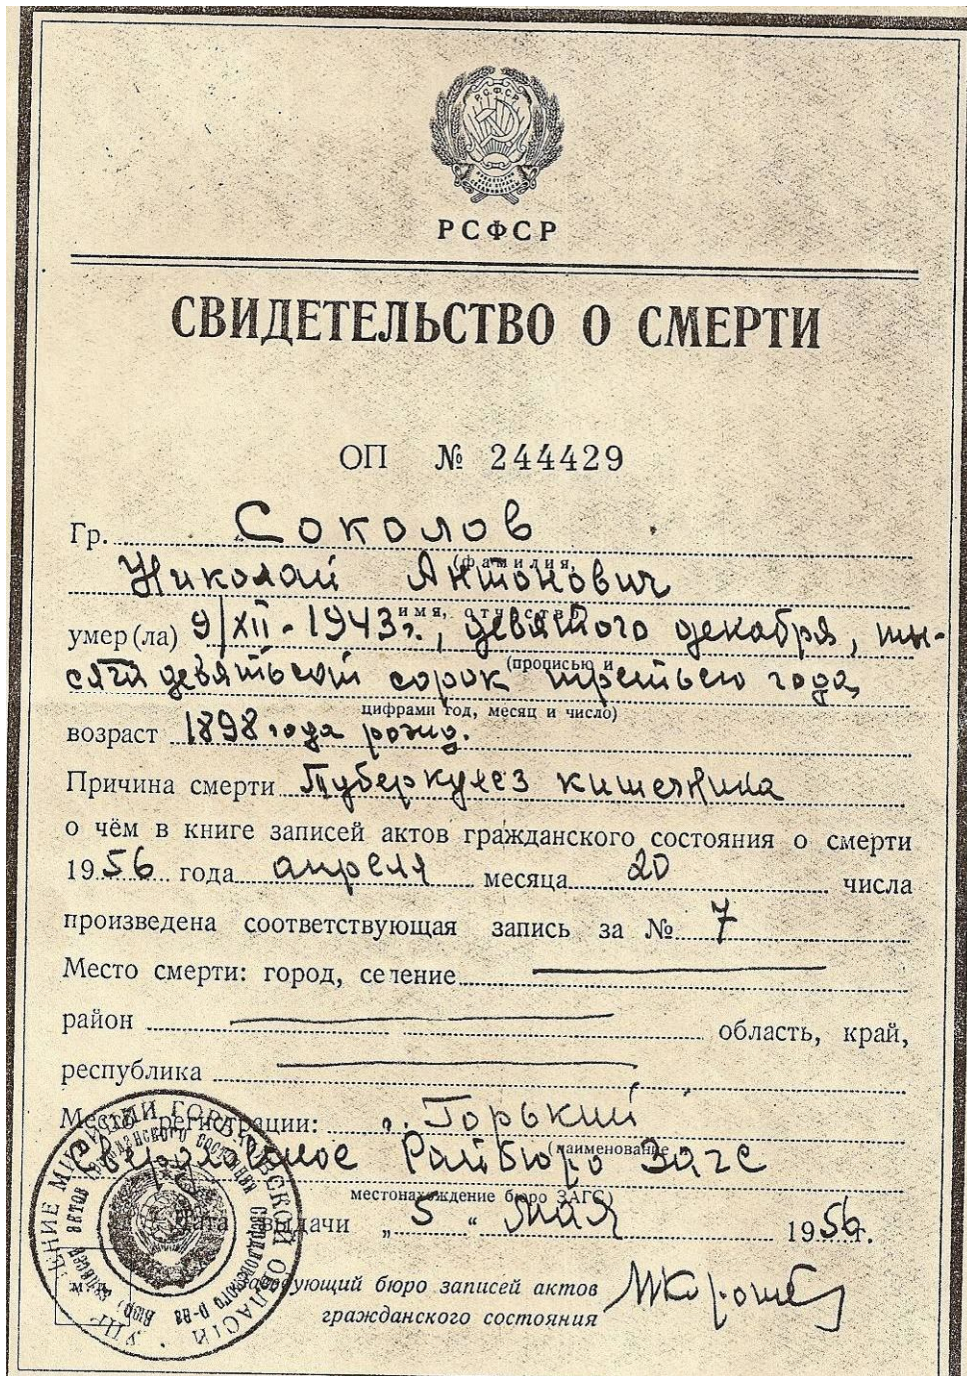 Р.С.Ф.С.Р.
РСФСР
СВИДЕТЕЛЬСТВО О СМЕРТИ
ОП № 244429
Гр. Соколов
(фамилия,
Николай Антонович
имя, отчество)
умер(ла) 9/XII - 1943г., девятого декабря, ты-
(прописью и
сяча девятьсот сорок третьего года,
цифрами год, месяц и число)
возраст 1898 года рожд.
Причина смерти Туберкулез кишечника
о чём в книге записей актов гражданского состояния о смерти
1956 года апреля месяца 20 числа
произведена соответствующая запись за № 7
Место смерти: город, селение
район область, край,
республика
Место регистрации: г. Горький
(наименование
Свердловское Райбюро Загс
местонахождение бюро ЗАГС)
Дата выдачи „5“ мая 1956г.
Заведующий бюро записей актов
гражданского состояния